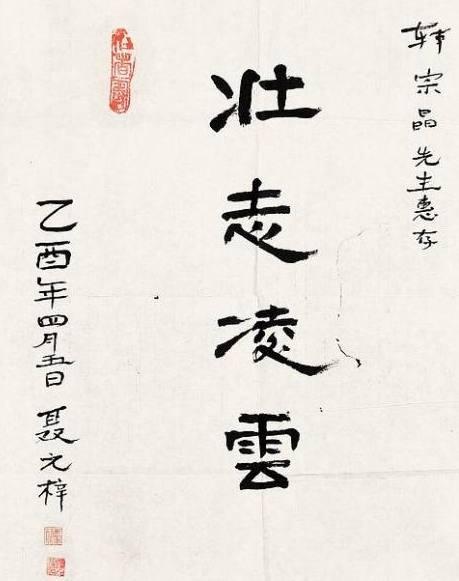 宗晶先生惠存
壮志凌雲
乙酉年四月五日 聂元梓